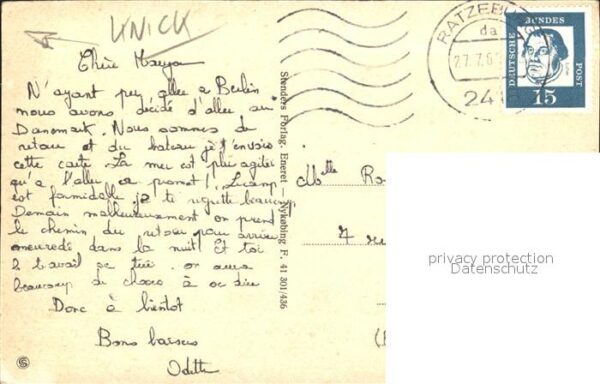 KNICK
Chère Maryse
N'ayant pu aller a Berlin
nous avons décidé d'aller au
Danemark. Nous sommes de
retour et du bateau je t'envoie
cette carte. La mer est plus agitée
qu'a l'aller ca promet!
est formidable je te regrette beaucoup
Demain malheureusement on prend
le chemin du retour pour arriver
mercredi dans la nuit. Et toi
le travail
beaucoup de choses à se dire
Donc à bientot
Bons baisers
Odette
Stenders Forlag. Eneret — Nykøbing F. 41 301/436
Mlle
7
RATZEBU
da
27.7.6
24
DEUTSCHE BUNDES POST
15
privacy protection
Datenschutz